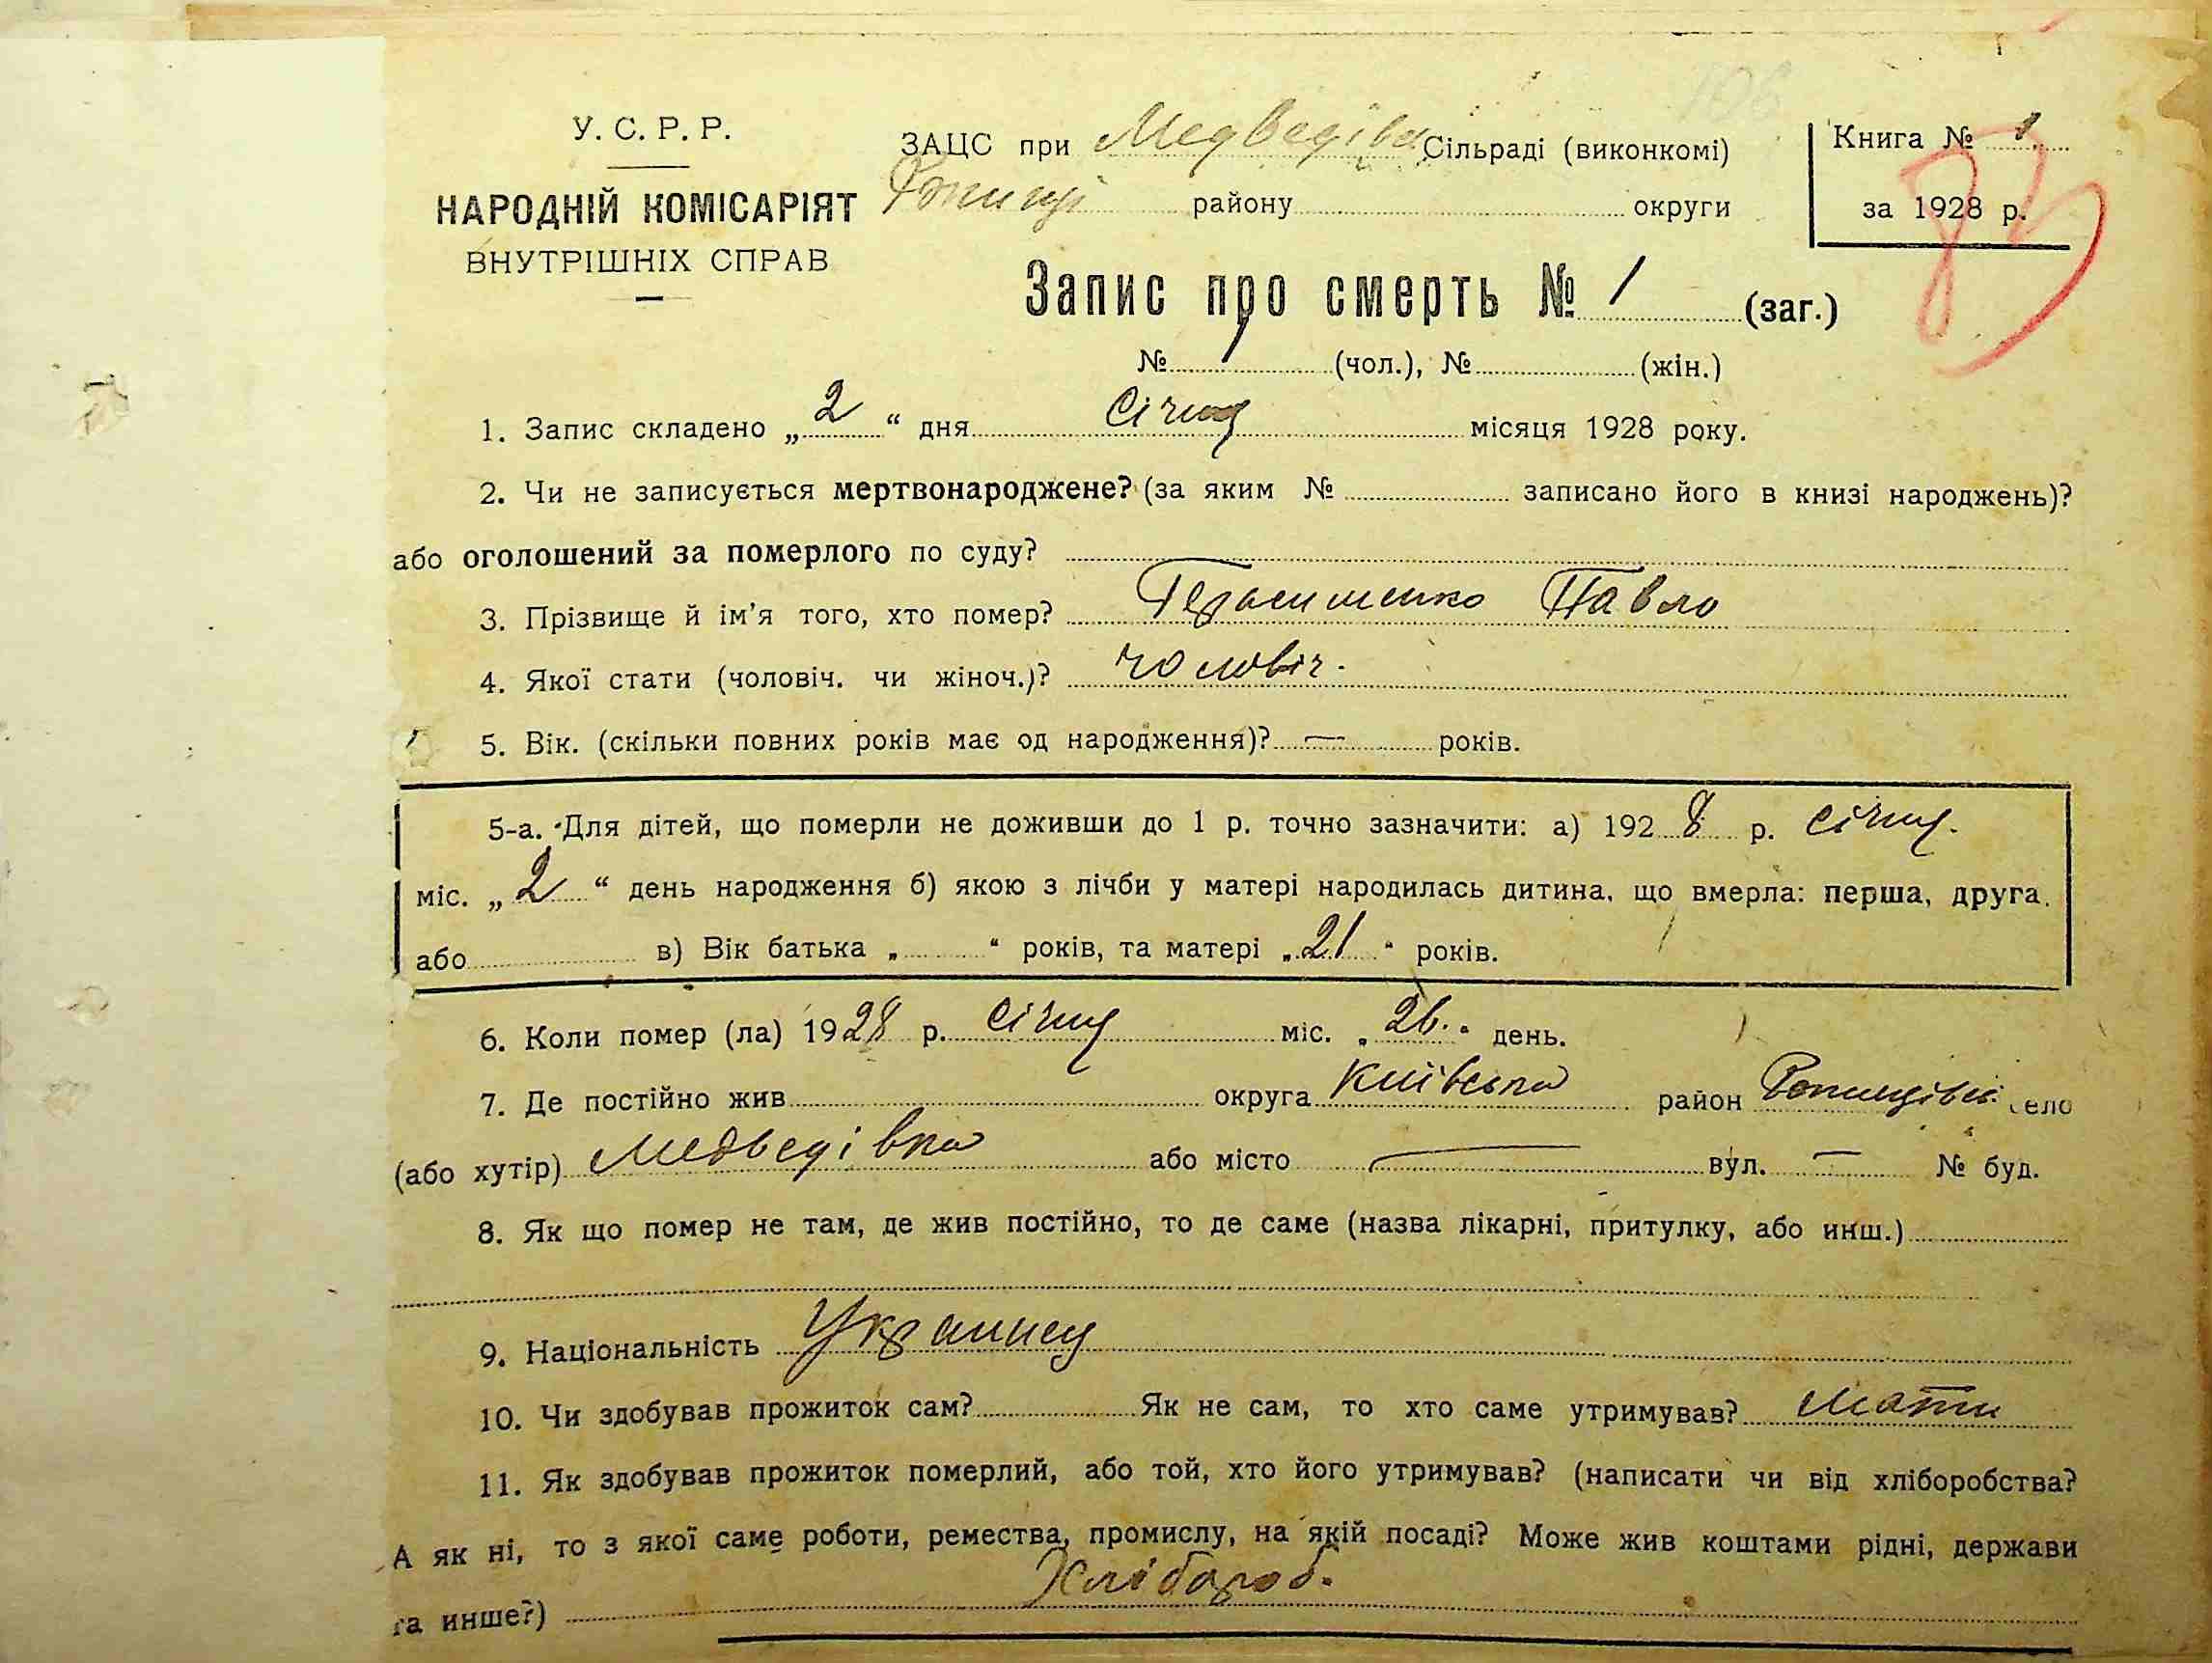 У. С. Р. Р.
НАРОДНІЙ КОМІСАРІЯТ
ВНУТРІШНІХ СПРАВ
ЗАЦС при Медведівс Сільраді (виконкомі)
району округи
Книга № 1
за 1928 р.
Запис про смерть № 1 (заг.)
№ 1 (чол.), № (жін.)
1. Запис складено „2“ дня Січня місяця 1928 року.
2. Чи не записується мертвонароджене? (за яким № записано його в книзі народжень)?
або оголошений за померлого по суду?
3. Прізвище й ім'я того, хто помер? Герасименко Павло
4. Якої стати (чоловіч. чи жіноч.)? чоловіч.
5. Вік. (скільки повних років має од народження)? — років.
5-а. Для дітей, що померли не доживши до 1 р. точно зазначити: а) 1928 р. січня.
міс. „2“ день народження б) якою з лічби у матері народилась дитина, що вмерла: перша, друга.
або в) Вік батька „ “ років, та матері „21“ років.
6. Коли помер (ла) 1928 р. січня міс. „ “ день.
7. Де постійно жив округа Київська район село
(або хутір) Медведівка або місто — вул. — № буд.
8. Як що помер не там, де жив постійно, то де саме (назва лікарні, притулку, або инш.)
9. Національність Українец
10. Чи здобував прожиток сам? Як не сам, то хто саме утримував? мати
11. Як здобував прожиток померлий, або той, хто його утримував? (написати чи від хліборобства?
А як ні, то з якої саме роботи, ремества, промислу, на якій посаді? Може жив коштами рідні, держави
та инше?) Хлібороб.